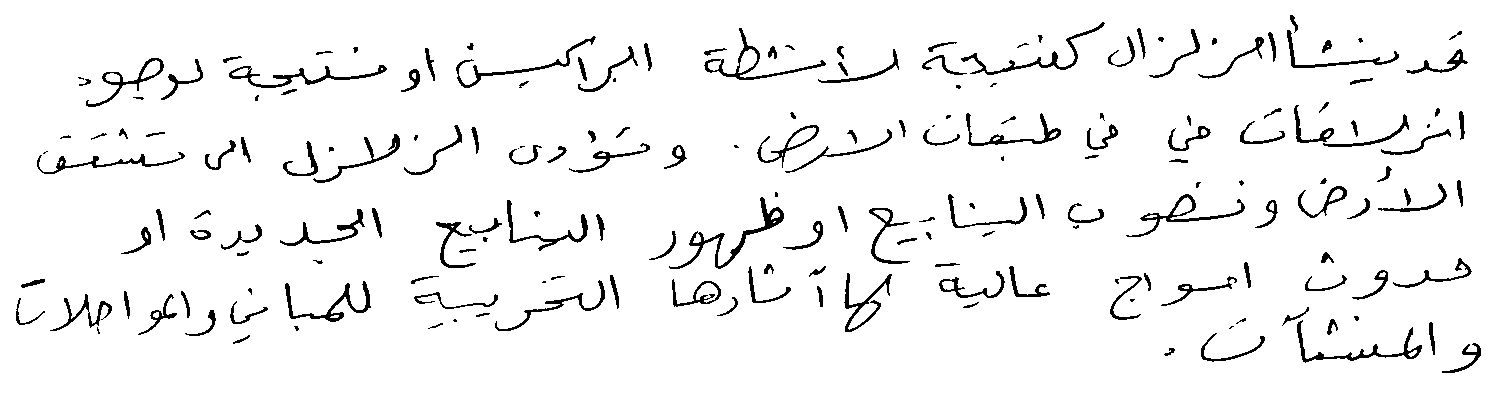 قد ينشأ الزلزال كنتيجة لأنشطة البراكين او نتيجة لوجود
انزلاقات في في طبقات الارض. وتؤدى الزلازل الى تشقق
الأرض ونضوب الينابيع او ظهور الينابيع الجديدة او
حدوث امواج عالية لها آثارها التخريبية للمباني والمواصلات
والمنشآت.